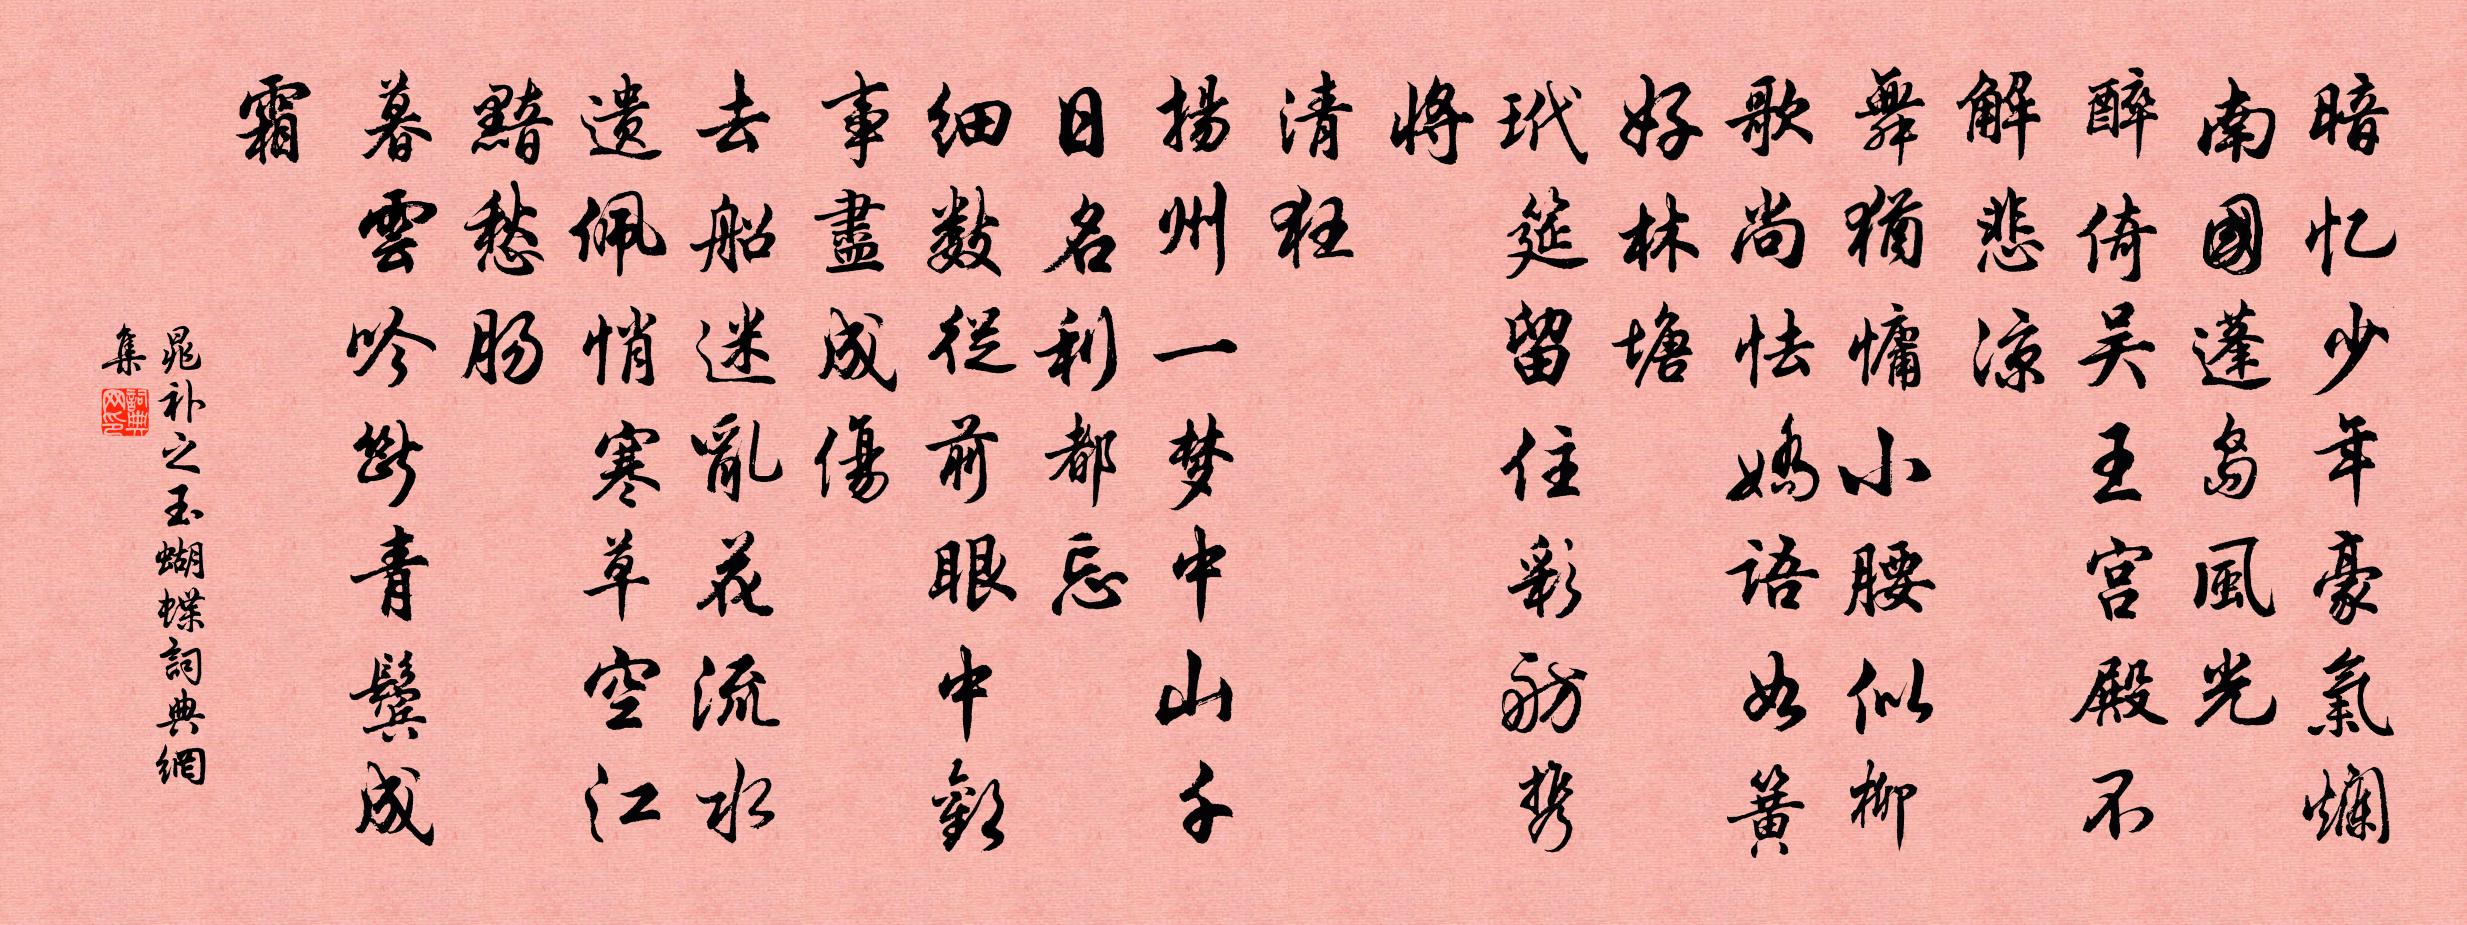 暗忆少年豪氣爛
南國蓬岛風光
醉倚吴王宫殿不
解悲凉
舞猶慵小腰似柳
歌尚怯嬌語如簧
好林塘
玳筵留住彩舫携
将
清狂
揚州一梦中山千
日名利都忘
细数從前眼中歡
事盡成傷
去船迷亂花流水
遗佩悄寒草空江
黯愁肠
暮雲吟斷青鬓成
霜
晁补之玉蝴蝶詞典網
集
詞典网印